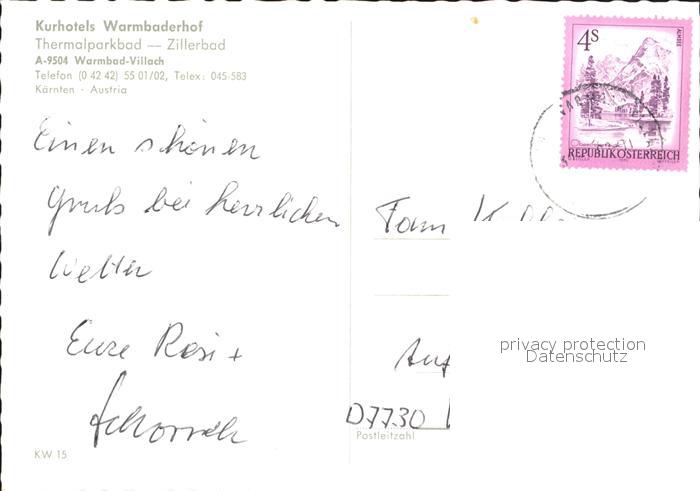 Kurhotels Warmbaderhof
Thermalparkbad — Zillerbad
A-9504 Warmbad-Villach
Telefon (0 42 42) 55 01/02, Telex: 045-583
Kärnten · Austria
4S
ALMSEE
REPUBLIK ÖSTERREICH
Einen schönen
Gruß bei herrlichem
Wetter
Eure Rosi +
Fam
privacy protection
Datenschutz
D7730
Postleitzahl
KW 15